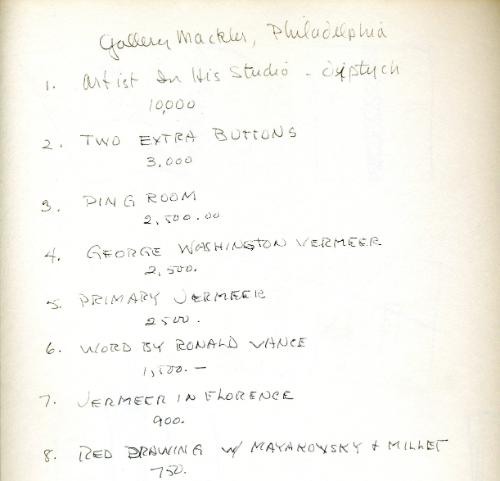 Gallery Mackler, Philadelphia
1. Artist In His Studio - diptych
10,000
2. TWO EXTRA BUTTONS
3,000
3. PING ROOM
2,500.00
4. GEORGE WASHINGTON VERMEER
2,500.
5. PRIMARY VERMEER
2500.
6. WORD BY RONALD VANCE
1,500.—
7. VERMEER IN FLORENCE
900.
8. RED DRAWING w/ MAYAKOVSKY + MILLET
750.